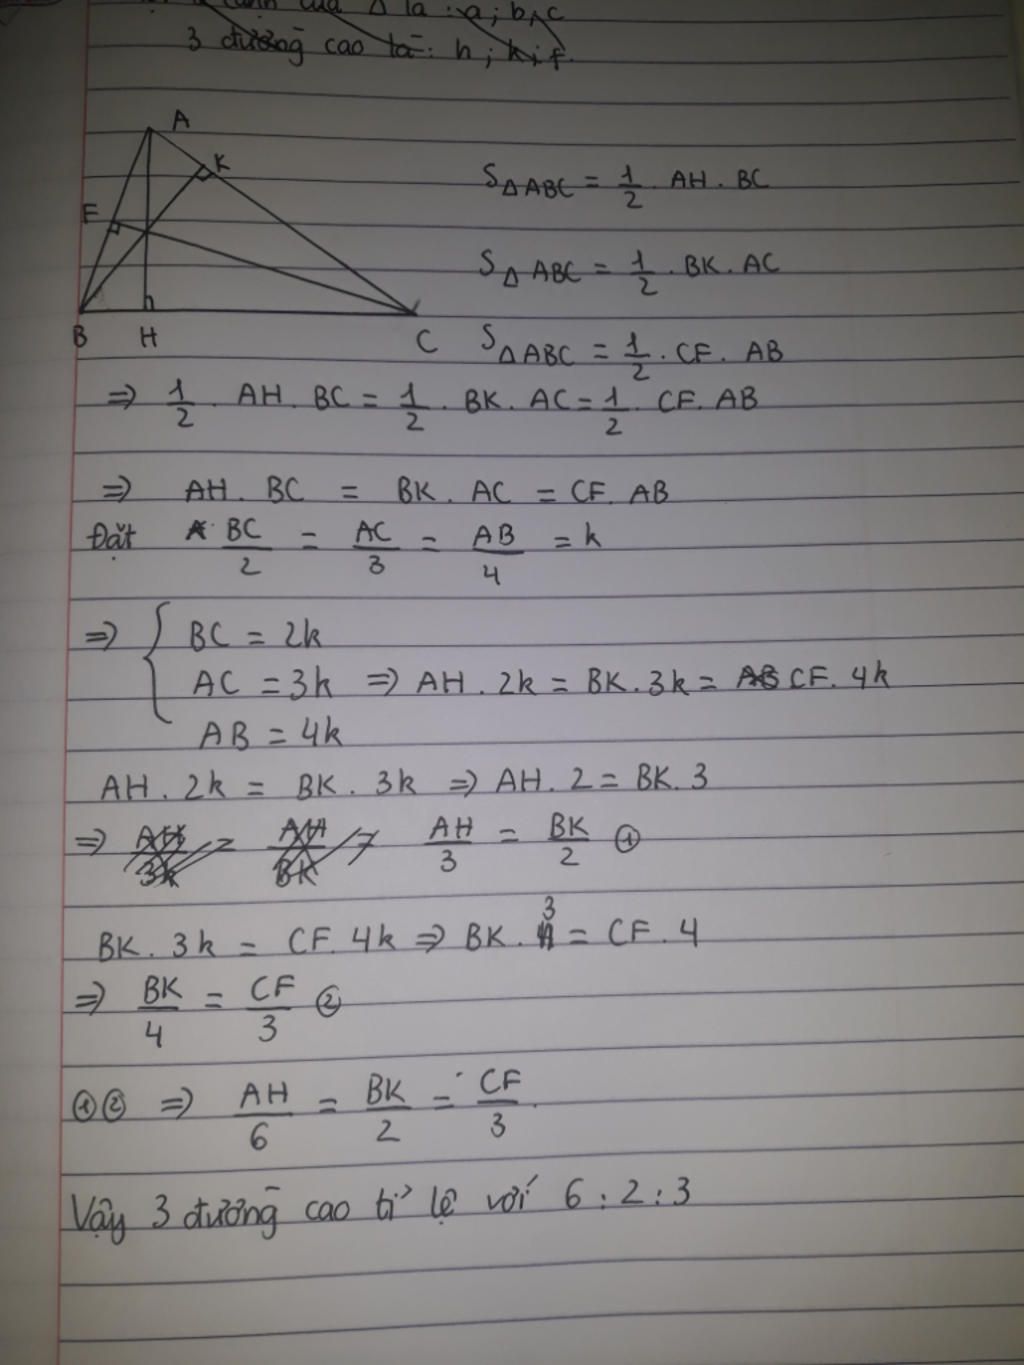 cạnh của Δ là : a ; b, c
3 đường cao là : h ; k ; f.
A
K
F
B H C
S Δ ABC = 1/2 . AH . BC
S Δ ABC = 1/2 . BK . AC
S Δ ABC = 1/2 . CF . AB
=> 1/2 . AH . BC = 1/2 . BK . AC = 1/2 . CF . AB
=> AH . BC = BK . AC = CF . AB
Đặt BC/2 = AC/3 = AB/4 = k
=> { BC = 2k
AC = 3k => AH . 2k = BK . 3k = AB CF . 4k
AB = 4k
AH . 2k = BK . 3k => AH . 2 = BK . 3
=> AH/3k = AH/BK => AH/3 = BK/2 ①
BK . 3k = CF . 4k => BK . 3 = CF . 4
=> BK/4 = CF/3 ②
① ② => AH/6 = BK/2 = CF/3 .
Vậy 3 đường cao tỉ lệ với 6 : 2 : 3